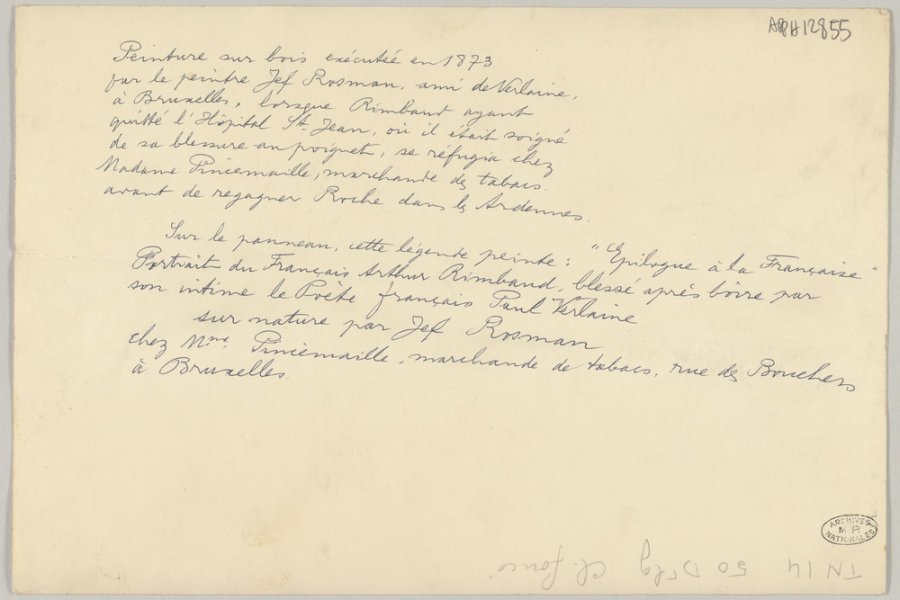 APH12855
Peinture sur bois exécutée en 1873
par le peintre Jef Rosman, ami de Verlaine,
à Bruxelles, lorsque Rimbaud ayant
quitté l'Hôpital St. Jean, où il était soigné
de sa blessure au poignet, se réfugia chez
Madame Pincemaille, marchande de tabacs.
avant de regagner Roche dans les Ardennes.
Sur le panneau, cette légende peinte : "Epilogue à la Française"
Portrait du Français Arthur Rimbaud, blessé après boire par
son intime le Poète français Paul Verlaine
sur nature par Jef Rosman
chez Mme. Pincemaille, marchande de tabacs, rue des Bouchers
à Bruxelles.
ARCHIVES
NATIONALES
TN 14 50